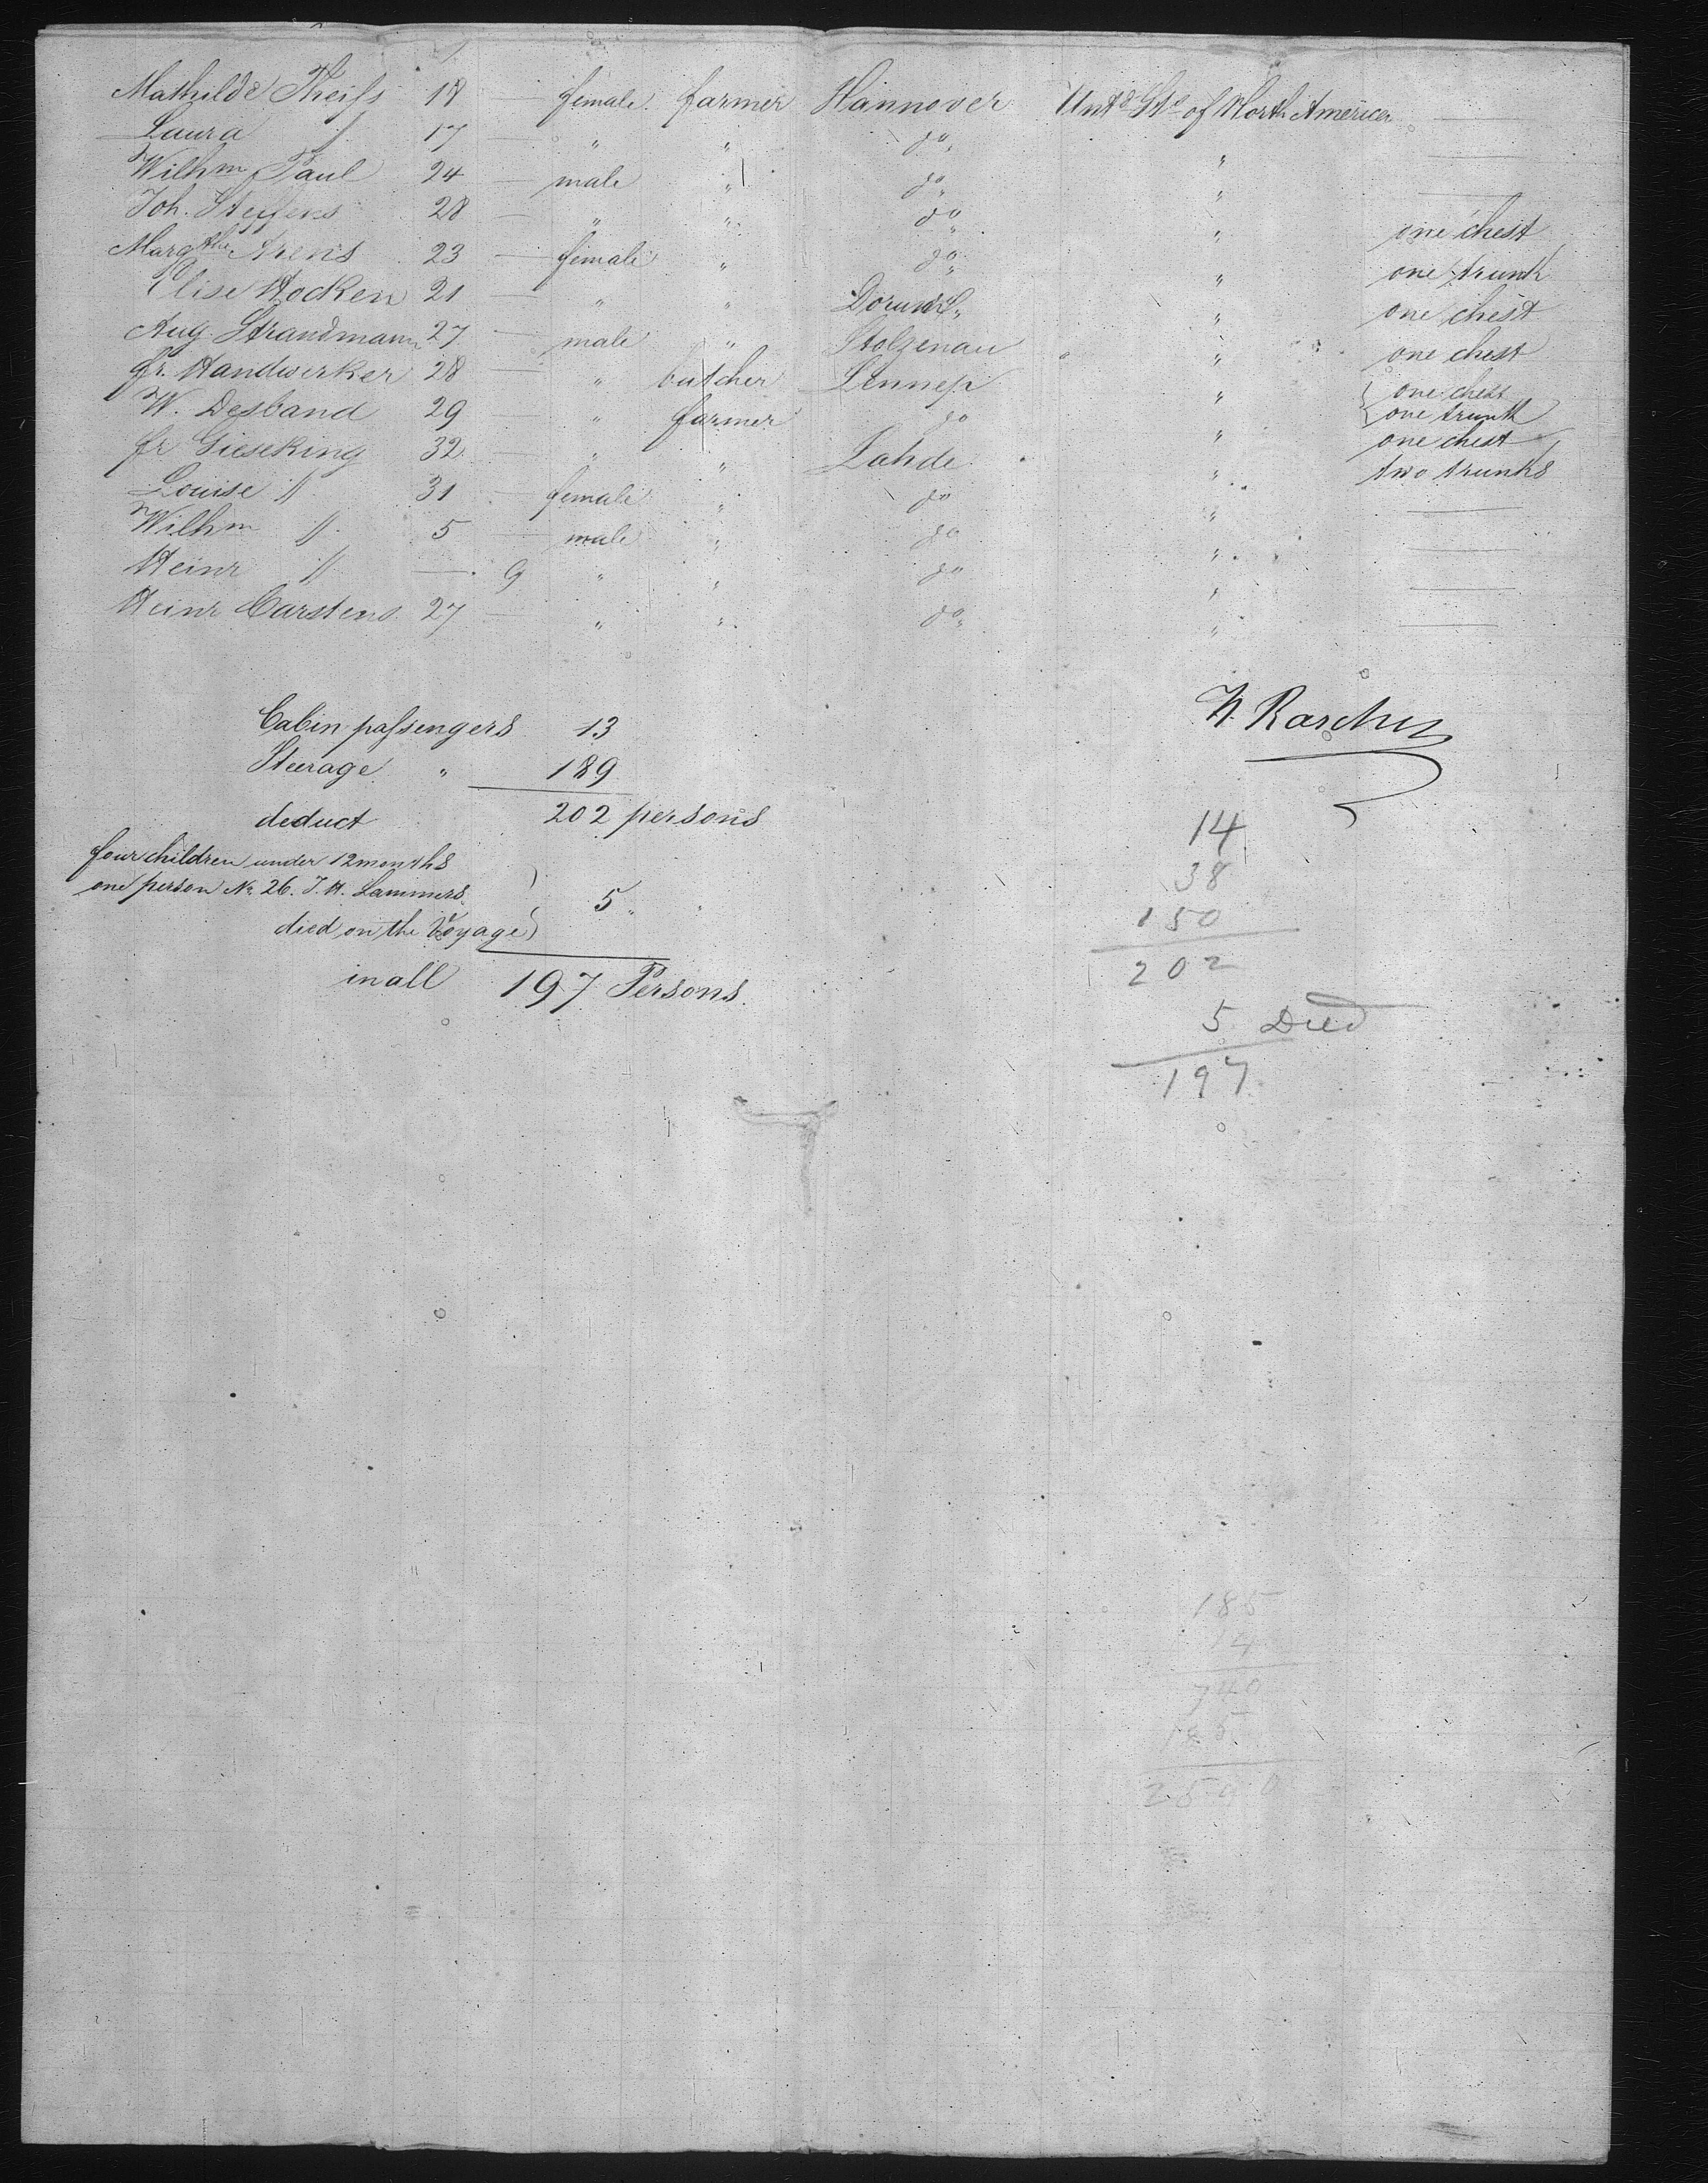 Mathilde Theiss 18 — female farmer Hannover Untd Sts of North America —
Laura " 17 — " " do " —
Wilhm Paul 24 — male " do " —
Joh. Steffens 28 — " " do " one chest
Margthe Arens 23 — female " do " one trunk
Elise Hocken 21 — " " " one chest
Aug. Strandmann 27 — male " Stolzenau " one chest
Fr. Handwerker 28 — " butcher Lennep " { one chest
one trunk
W. Desband 29 — " farmer do " one chest
Fr Gieseking 32 " " Lahde " two trunks
Louise " 31 — female " do " —
Wilhm " 5 — male " do " —
Heinr " — 9 " " do " —
Heinr Carstens 27 — " " do " —
Cabin passengers 13
Steerage " 189
deduct 202 persons
four children under 12 months
one person No 26. J. H. Lammers } 5 "
died on the Voyage
in all 197 Persons.
14
38
150
202
5 Died
197
185
14
740
185